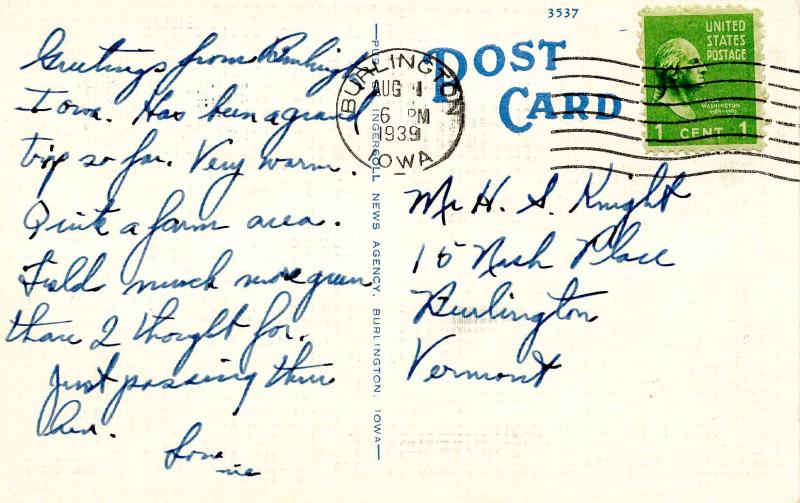 Greetings from Burlington
Iowa. Has been a grand
trip so far. Very warm.
Quite a farm area.
Field much more green
than I thought for.
Just passing thru
here.
3537
POST
CARD
BURLINGTON
AUG 1
6 PM
1939
IOWA
UNITED
STATES
POSTAGE
WASHINGTON
1789-1797
1 CENT 1
INGERSOLL NEWS AGENCY, BURLINGTON, IOWA
Mr H. S. Knight
15 Nash Place
Burlington
Vermont